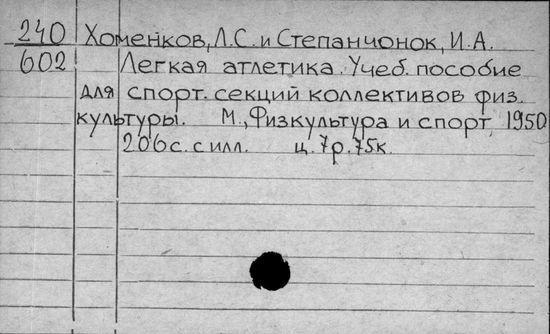 240 Хоменков, Л.С. и Степанчонок, И.А.
602 Легкая атлетика. Учеб. пособие
для спорт. секций коллективов физ.
культуры. М., Физкультура и спорт, 1950
206 с. с илл. ц. 7р. 75к.